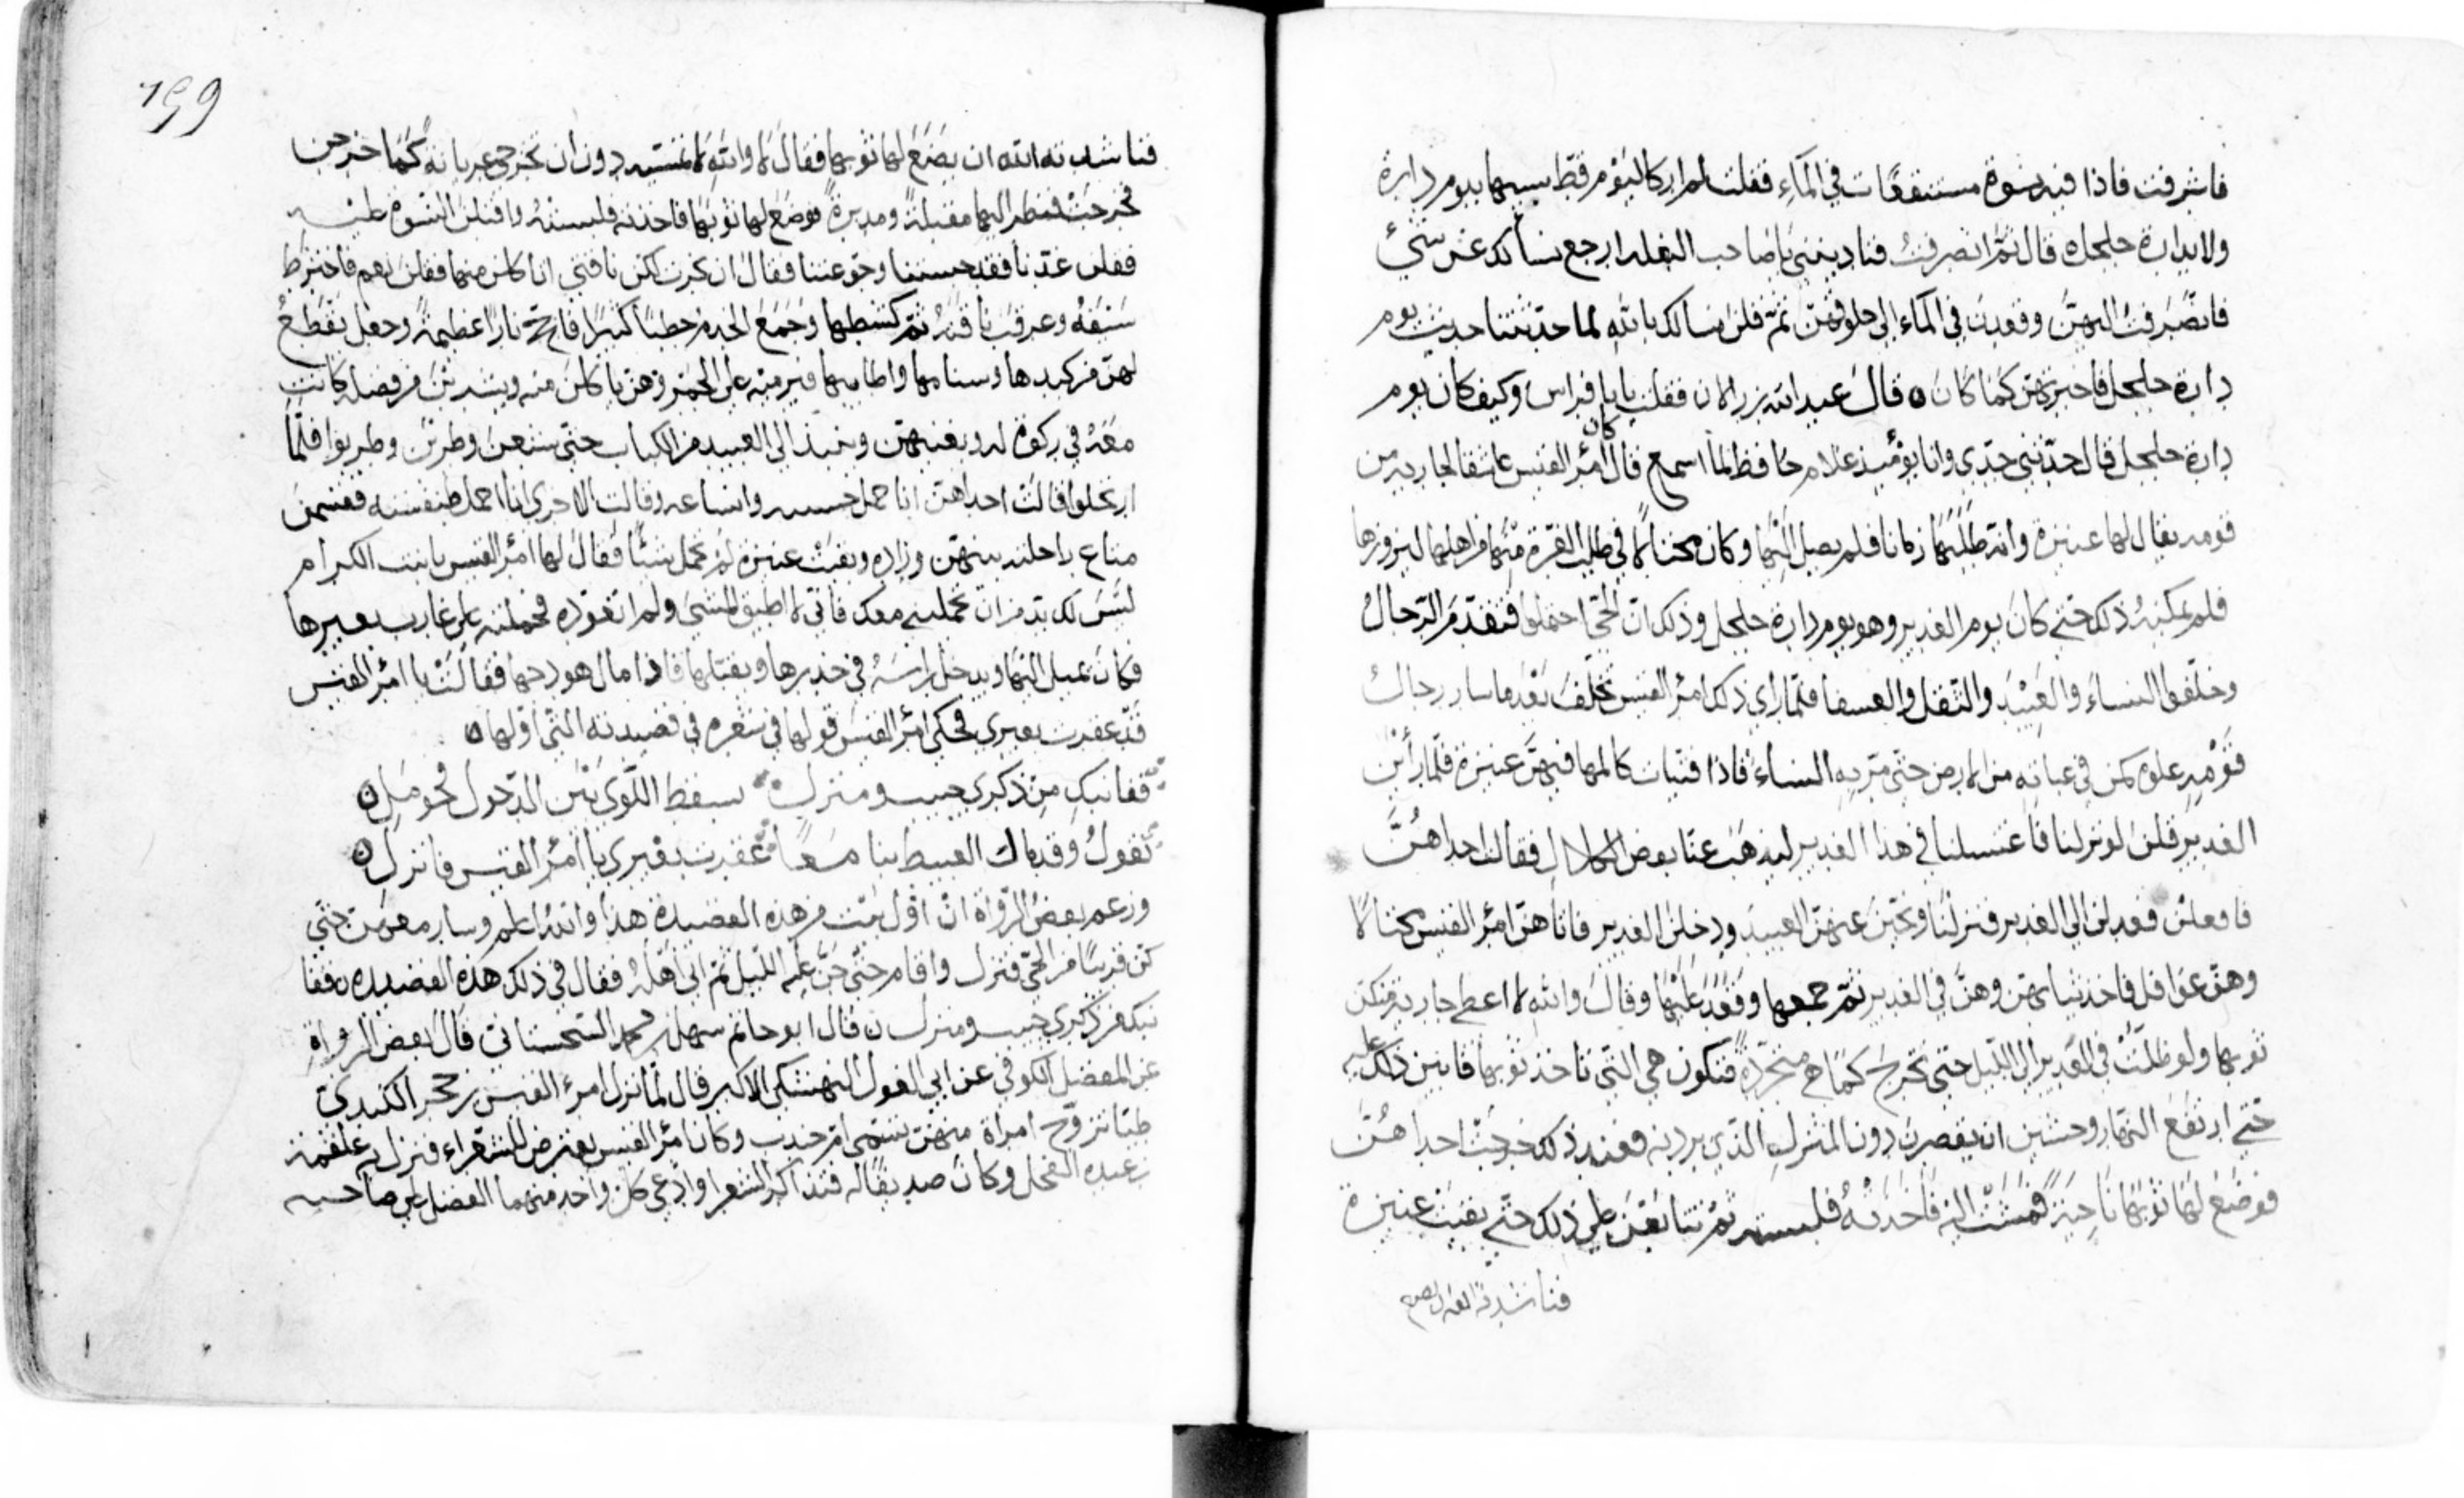 فاشرفت فاذا فيه نسوة مستنقعات في الماء فقلت لم ار كاليوم قط شبيها بيوم دارة
ولا بدارة جلجل قال ثم انصرفت فنادينني يا صاحب البغله ارجع نسألك عن شئ
فانصرفت اليهن وقعدن في الماء الى حلوقهن ثم قلن نسالك بالله لما حدثتنا حديث يوم
دارة جلجل فاخبرتهن كما كان قال عبد الله بن رالان فقلت يابا فراس وكيف كان يوم
دارة جلجل قال حدثني جدى وانا يومئيذ غلام حافظ لما اسمع قال كان امرؤ القيس عاشقا لجارية من
قومه يقال لها عنيزة وانه طلبها زمانا فلم يصل اليها وكان محتالا في طلب الغرة منها من اهلها ليزورها
فلم يمكنه ذلك حتى كان يوم الغدير وهو يوم دارة جلجل وذلك ان الحي احتملوا فتقدم الرجال
وخلفوا النساء والعبيد والثقل والعسفا فلما راى ذلك امرؤ القيس تخلف بعد ما سار رجال
قومه غلوة كمن في غيابة من الارض حتى مر به النساء فاذا فتيات كالمها فيهن عنيزة فلما رأين
الغدير قلن لو نزلنا فاغتسلنا في هذا الغدير ليذهب عنا بعض الكلال فقالت احداهن
فافعلن فعدلن الى الغدير فنزلنا ونحين عنهن العبيد ودخلن الغدير فاتاهن امرؤ القيس محتالا
وهن غوافل فاخذ ثيابهن وهن في الغدير ثم جمعها وقعد عليها وقال والله لا اعطى جارية منكن
ثوبها ولو ظلت في الغدير الى الليل حتى تخرج كما هى متجردة فتكون هي التي تاخذ ثوبها فابين ذلك عليه
حتى ارتفع النهار وخشين ان يقصرن دون المنزل الذى يردنه فعند ذلك خرجت احداهن
فوضع لها ثوبها ناحيةً فمشت اليه فاخذته فلبسته ثم تتابعن على ذلك حتى بقيت عنيزة
فناشدته الله ان يضع
٢٩٩
فناشدته الله ان يضع لها ثوبها فقال لا والله لا تمسيه دون ان تخرجي عريانة كما خرجن
فخرجت فنظر اليها مقبلة ومدبرة فوضع لها ثوبها فاخذته فلبسته واقبلن النسوة عليه
فقلن غدنا فقد حبستنا وجوعتنا فقال ان نحرت لكن ناقتي اتاكلن منها فقلن نعم فاخترط
سيفه وعرقب ناقته ثم كشطها وجمع الخدم حطبا كثيرا فاجج نارا عظيمة وجعل يقطع
لهن من كبدها وسنامها واطايبها فيرميه على الجمر وهن ياكلن منه ويشربن من فضله كانت
معه في ركوة له ويغنيهن وينبذ الى العبيد من الكباب حتى شبعن وطربن وطربوا فلما
ارتحلوا قالت احداهن انا احمل خشبه وانساعه وقالت الاخرى انا احمل طنفسته فقسمن
متاع راحلته بينهن وزاده وبقيت عنيزة لم تحمل شيئا فقال لها امرؤ القيس يا بنت الكرام
ليس لك بد من ان تحمليني معك فاني لا اطيق المشي ولم اتعوده فحملته على غارب بعيرها
فكان يميل اليها ويدخل راسه في خدرها ويقبلها فاذا مال هودجها فقالت يا امرؤ القيس
قد عقرت بعيري فحكى امرؤ القيس قولها في شعره في قصيدته التي اولها
قفا نبك من ذكرى حبيب ومنزل بسقط اللوى بين الدخول فحومل
تقول وقد مال الغبيط بنا معا عقرت بعيري يا امرؤ القيس فانزل
وزعم بعض الرواة ان اول بيت من هذه القصيدة هذا والله اعلم وسار معهن حتى
كن قريبا من الحي فنزل واقام حتى جن عليه الليل ثم اتى اهله فقال في ذلك هذه القصيده قفا
نبك من ذكرى حبيب ومنزل قال ابو حاتم سهل بن محمد السجستاني قال بعض الرواة
عن المفضل الكوفي عن ابي الغول النهشلي الاكبر قال لما نزل امرء القيس بن حجر الكندي
طيا تزوج امراة منهن تسمى ام جندب وكان امرؤ القيس يعترض للشعراء فنزل به علقمة
بن عبده الفحل وكان صديقا له فتذاكر الشعرا وادعى كل واحد منهما الفضل على صاحبه